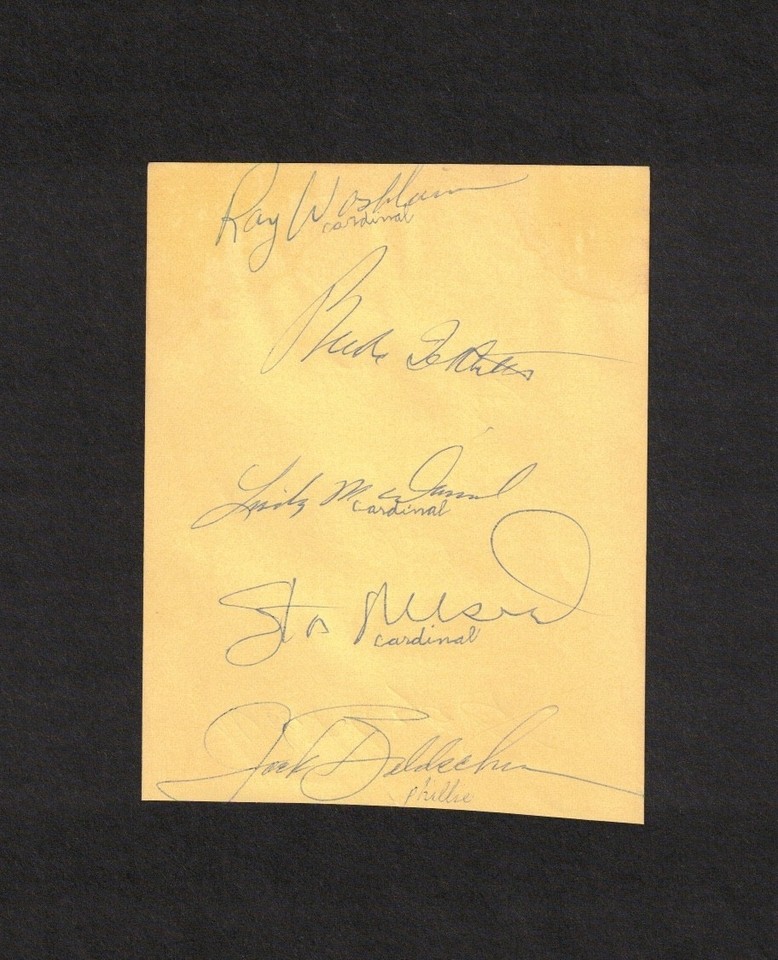 Ray Washburn
cardinal
Lindy McDaniel
cardinal
Stan Musial
cardinal
Jack Baldschun
phillie